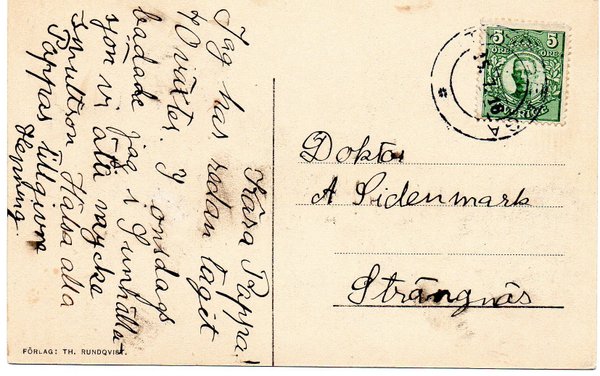 Kära Pappa!
Jag har redan tagit
70 växter. I onsdags
badade jag i Sunnhälla-
sjön vi åto mycke
Smultron Hälsa alla
Pappas tillgivne
Henning.
5 5
ÖRE ÖRE
SVERIGE
Doktor
A Sidenmark
Strängnäs
FÖRLAG: TH. RUNDQVIST.